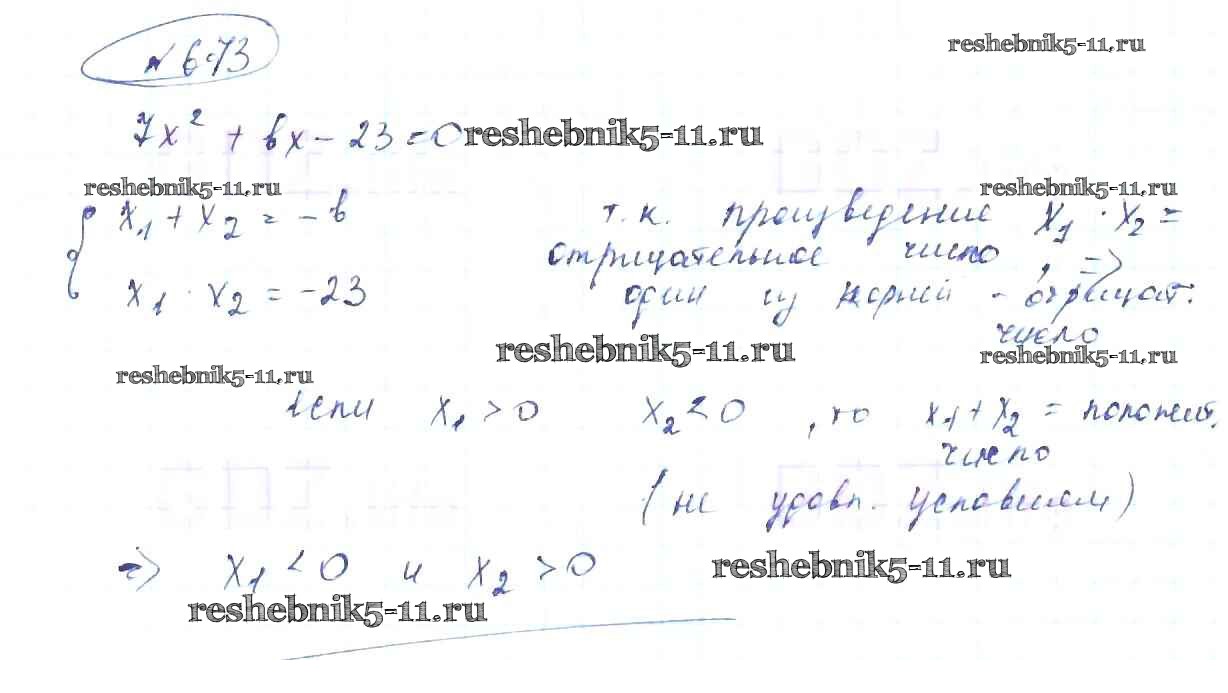 № 673
reshebnik5-11.ru
7x² + bx - 23 = 0 reshebnik5-11.ru
reshebnik5-11.ru
reshebnik5-11.ru
x₁ + x₂ = - b
x₁ · x₂ = -23
т.к. произведение x₁ · x₂ =
отрицательное число, =>
один из корней - отрицат.
число
reshebnik5-11.ru
reshebnik5-11.ru
reshebnik5-11.ru
если x₁ > 0 x₂ < 0 , то x₁ + x₂ = положит.
число
(не удовл. условиям)
=> x₁ < 0 и x₂ > 0
reshebnik5-11.ru
reshebnik5-11.ru